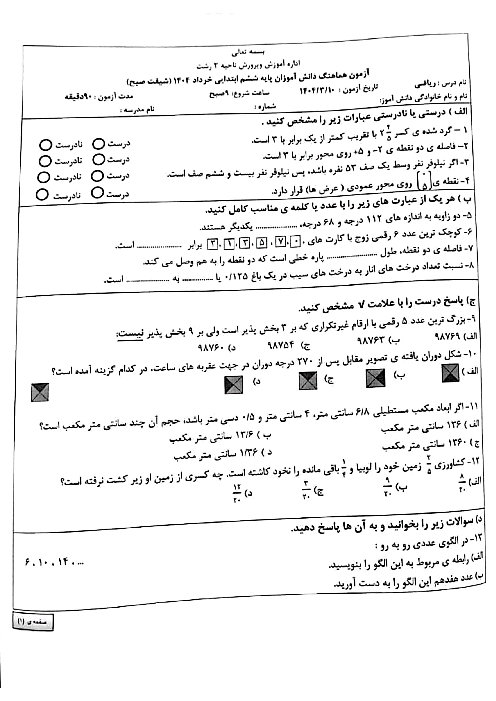 بسمه تعالی
اداره آموزش وپرورش ناحیه ۲ رشت
آزمون هماهنگ دانش آموزان پایه ششم ابتدایی خرداد ۱۴۰۴ (شیفت صبح)
نام درس : ریاضی تاریخ آزمون : ۱۴۰۴/۳/۱۰ ساعت شروع : ۹صبح مدت آزمون : ۹۰دقیقه
نام و نام خانوادگی دانش آموز: شماره : نام مدرسه :
الف ) درستی یا نادرستی عبارات زیر را مشخص کنید .
۱ – گرد شده ی کسر با تقریب کمتر از یک برابر با ۳ است. درست نادرست
۲- فاصله ی دو نقطه ی ۲- و ۵+ روی محور برابر با ۳ است. درست نادرست
۳- اگر نیلوفر نفر وسط یک صف ۵۳ نفره باشد، پس نیلوفر نفر بیست و ششم صف است. درست نادرست
۴- نقطه ی [۰ ۵] روی محور عمودی ( عرض ها) قرار دارد. درست نادرست
ب ) هر یک از عبارت های زیر را با عدد یا کلمه ی مناسب کامل کنید.
۵- دو زاویه به اندازه های ۱۱۲ درجه و ۶۸ درجه، .................. یکدیگر هستند.
۶- کوچک ترین عدد ۶ رقمی زوج با کارت های برابر .................. است.
۷- فاصله ی دو نقطه، طول .................. پاره خطی است که دو نقطه را به هم وصل می کند.
۸- نسبت تعداد درخت های انار به درخت های سیب در یک باغ ۰/۱۲۵ یا ............ به ............ است.
ج) پاسخ درست را با علامت √ مشخص کنید.
۹- بزرگ ترین عدد ۵ رقمی با ارقام غیرتکراری که بر ۳ بخش پذیر است ولی بر ۹ بخش پذیر نیست:
الف) ۹۸۷۶۹ ب) ۹۸۷۶۳ ج) ۹۸۷۵۴ د) ۹۸۷۶۰
۱۰- شکل دوران یافته ی تصویر مقابل پس از ۲۷۰ درجه دوران در جهت عقربه های ساعت، در کدام گزینه آمده است؟
الف) ب) ج) د)
۱۱- اگر ابعاد مکعب مستطیلی ۶/۸ سانتی متر، ۴ سانتی متر و ۰/۵ دسی متر باشد، حجم آن چند سانتی متر مکعب است؟
الف ) ۱۳۶ سانتی متر مکعب ب ) ۱۳/۶ سانتی متر مکعب
ج ) ۱۳۶۰ سانتی متر مکعب د ) ۱/۳۶ سانتی متر مکعب
۱۲- کشاورزی ۲/۵ زمین خود را لوبیا و ۱/۴ باقی مانده را نخود کاشته است. چه کسری از زمین او زیر کشت نرفته است؟
الف) ۸/۲۰ ب) ۹/۲۰ ج) ۳/۲۰ د) ۱۲/۲۰
د) سوالات زیر را بخوانید و به آن ها پاسخ دهید.
۱۳- در الگوی عددی رو به رو : ۶ ، ۱۰ ، ۱۴ ، ...
الف) رابطه ی مربوط به این الگو را بنویسید.
ب) عدد هفدهم این الگو را به دست آورید.
صفحه ی (۱)